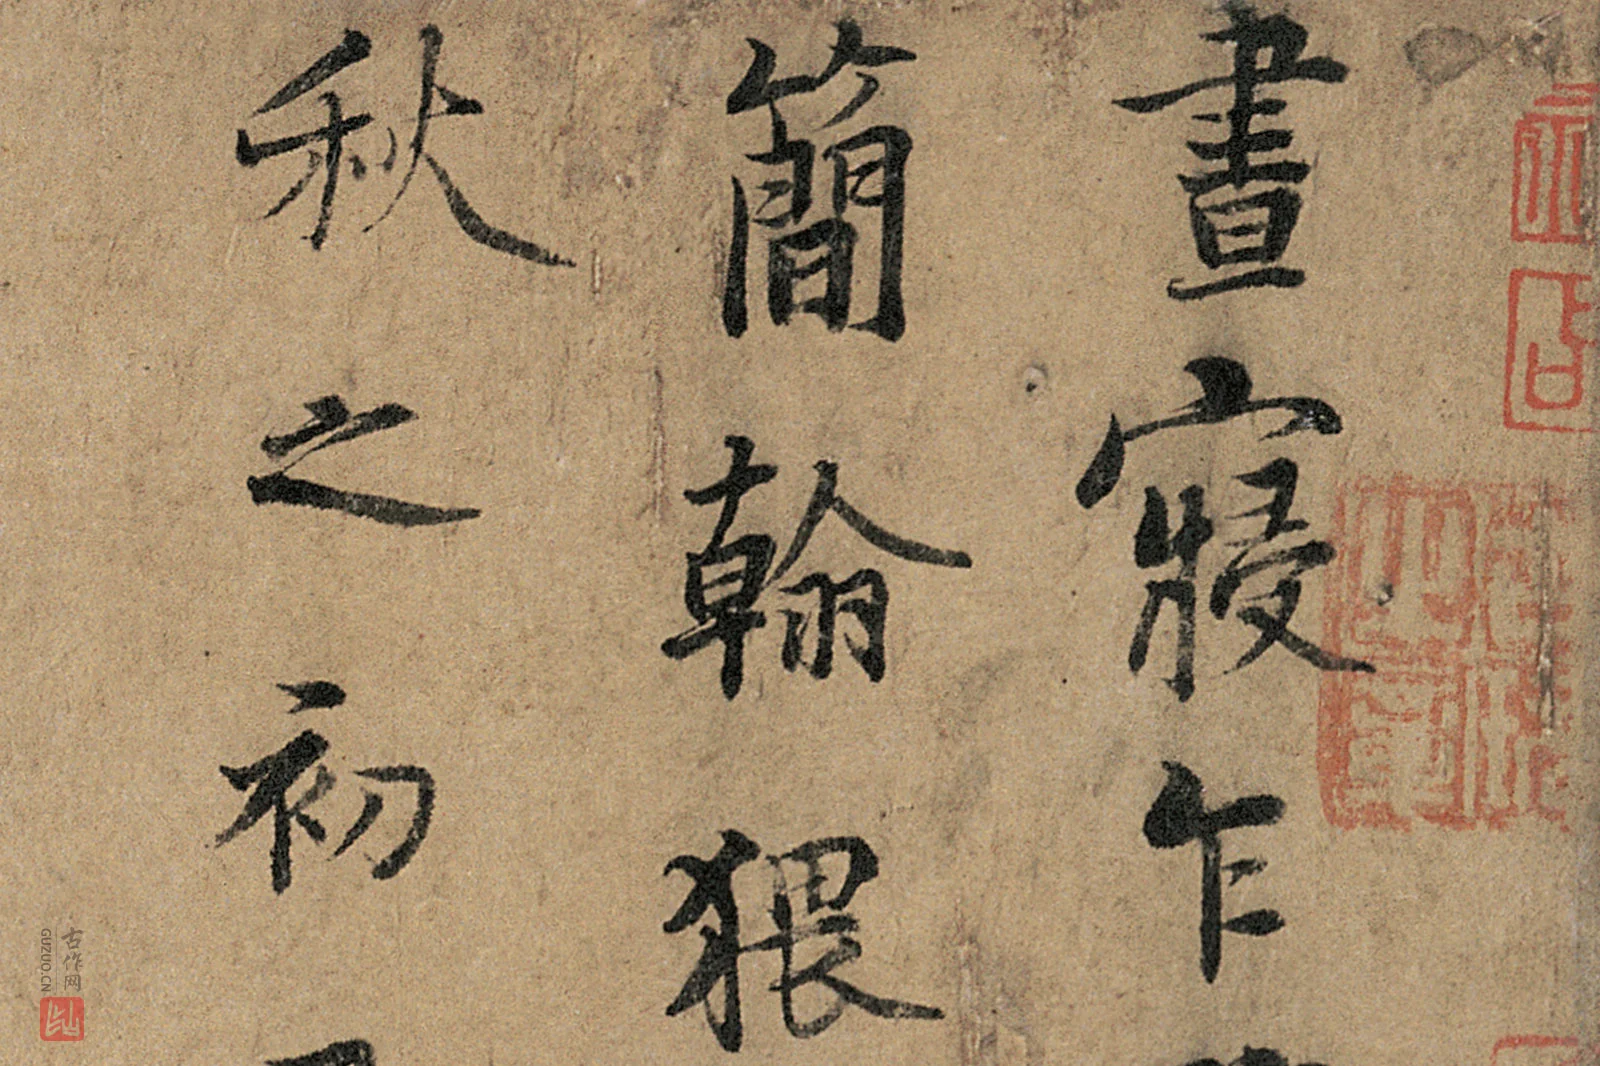 晝寢乍
簡翰猥
秋之初
古作网
GUZUO.CN